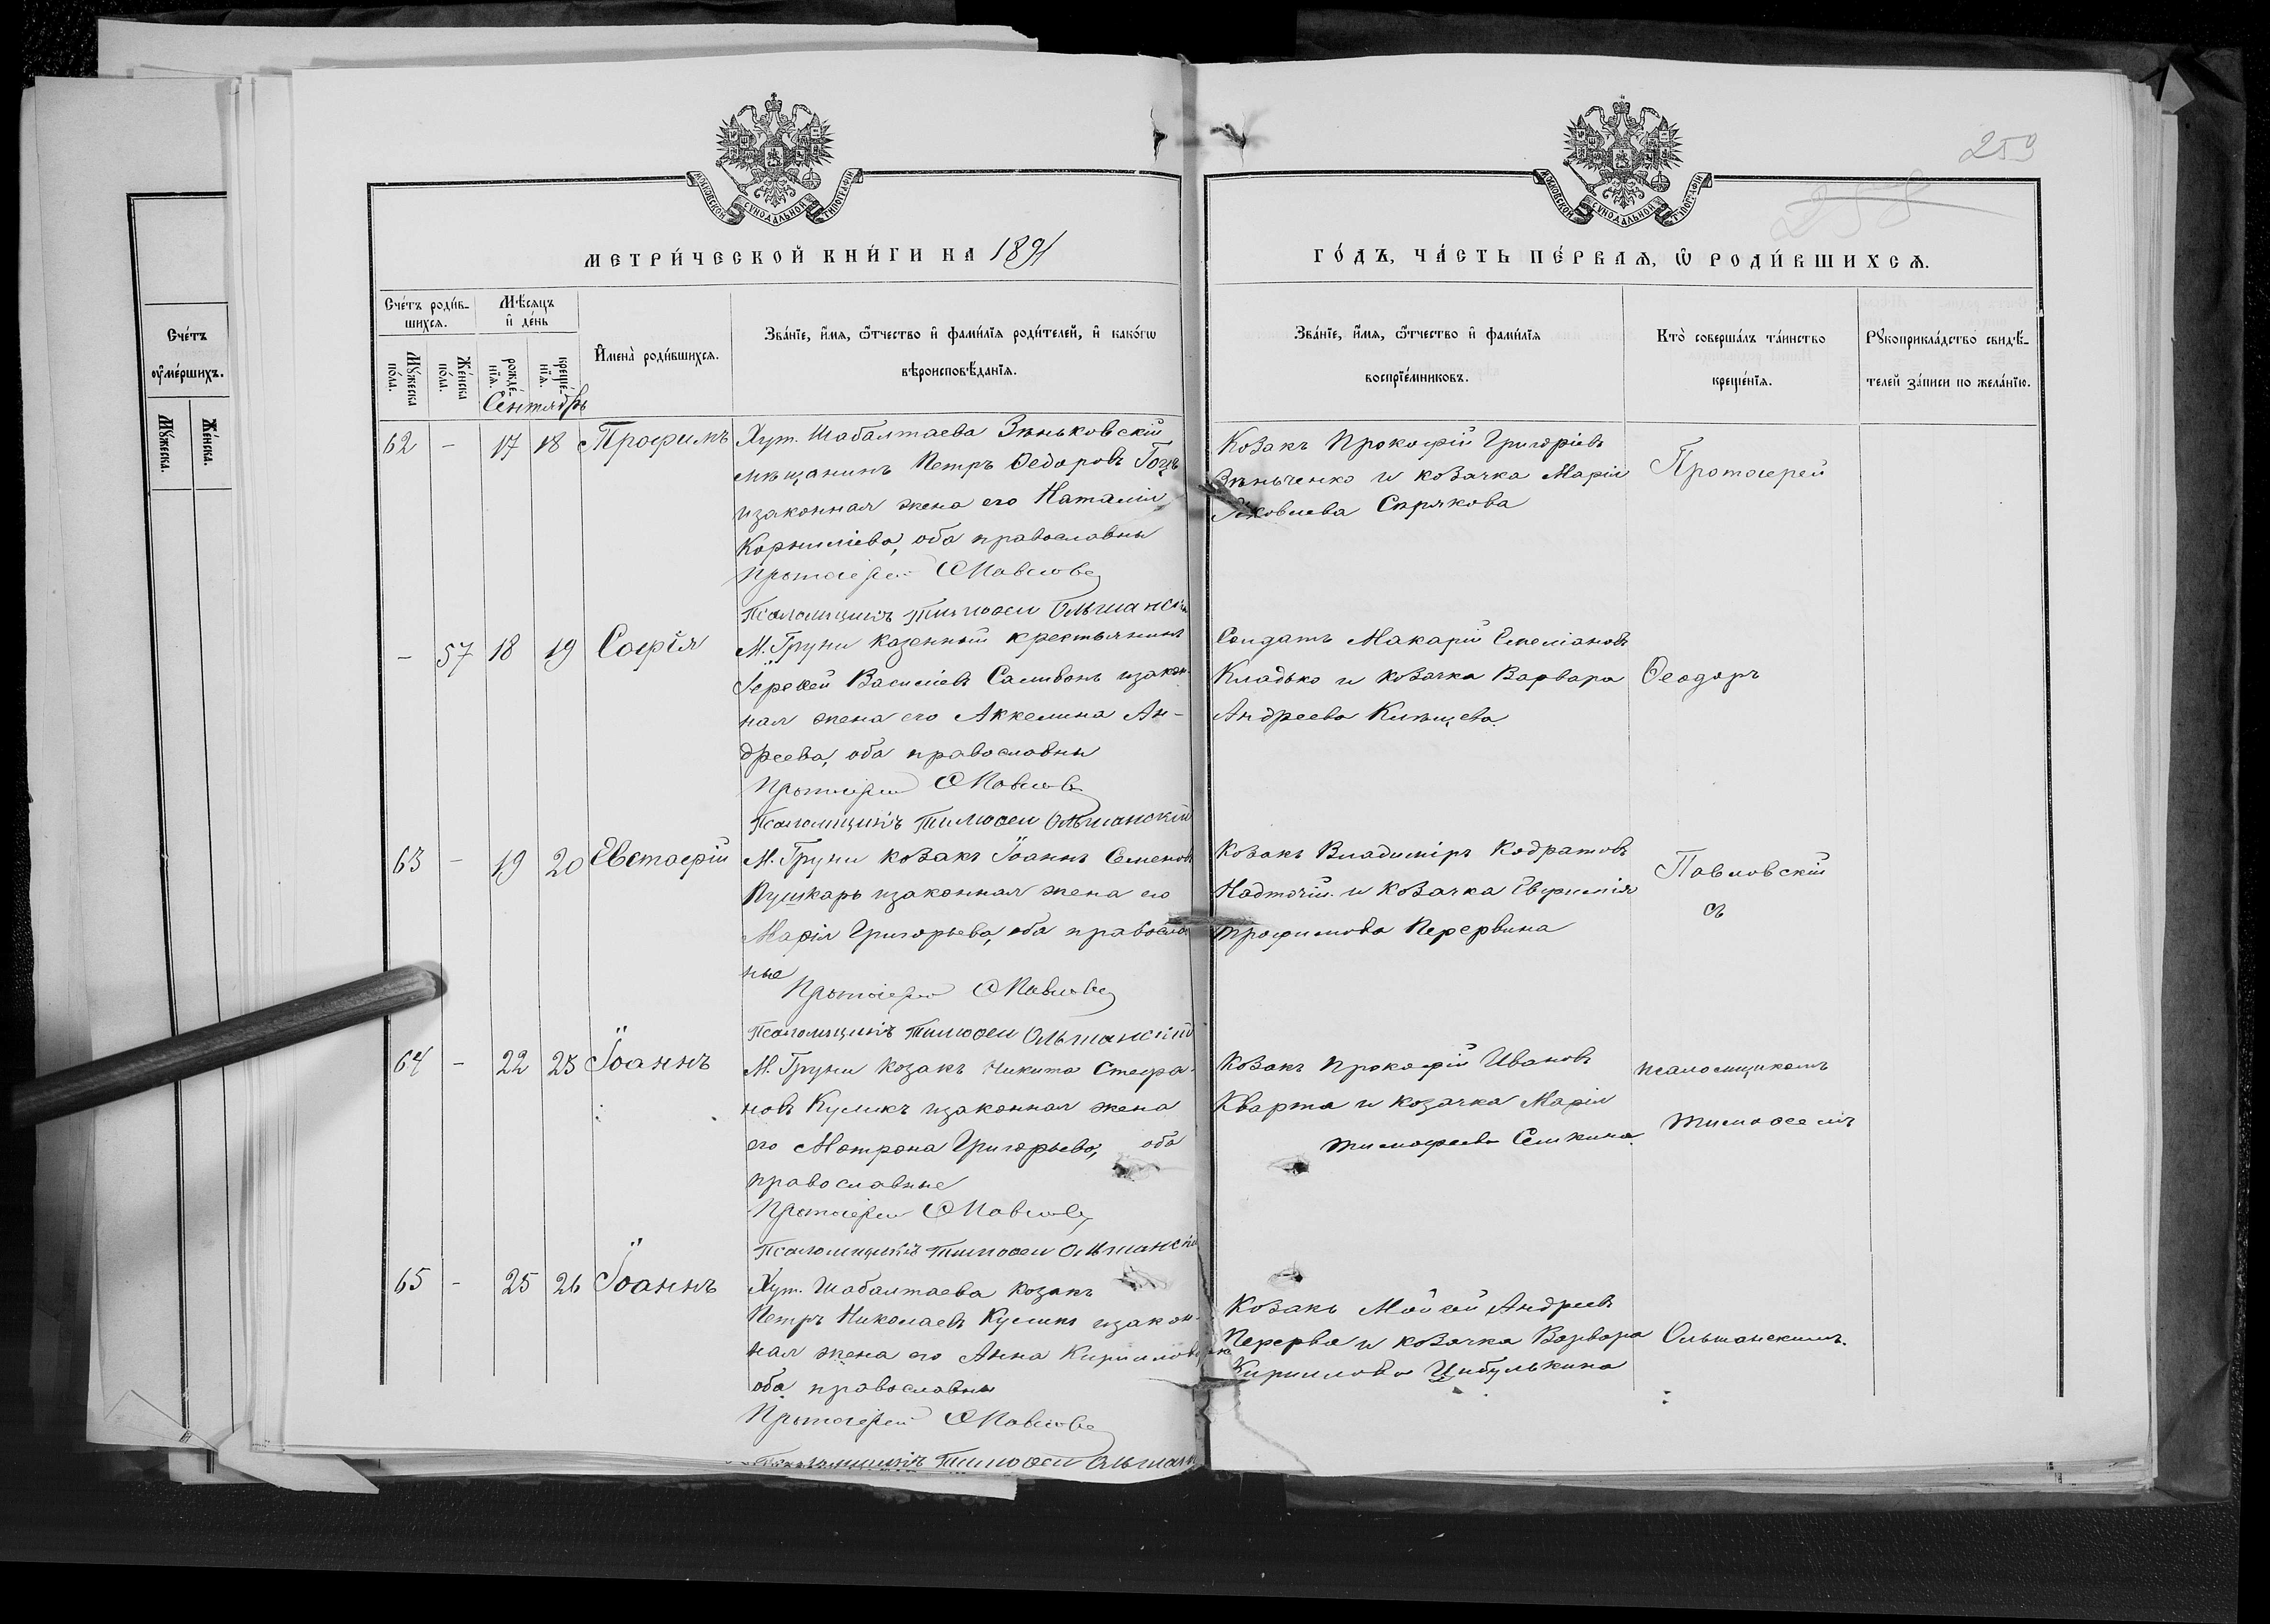 259
258
МОСКОВСКОЙ СѴНОДАЛЬНОЙ ТИПОГРАФІИ
МОСКОВСКОЙ СѴНОДАЛЬНОЙ ТИПОГРАФІИ
МЕТРИ́ЧЕСКОЙ КНИ́ГИ НА 1891
ГО́ДЪ, ЧА́СТЬ ПЕ́РВАЯ, Ѿ РОДИ́ВШИХСЯ.
Счéтъ
оумéршихъ.
Мꙋ́жеска.
Жéнска.
Счéтъ роди́в-
шихся.
Мѣ́сяцъ
и дéнь
Мꙋ́жеска пóла.
Жéнска пóла.
рождé-
нїя.
крещé-
нїя.
Сентябрь
Именà роди́вшихся.
Звáнїе, имя, ѻтчество и фами́лїя роди́телей, и какóгѡ
вѣроисповѣ́данїя.
Звáнїе, имя, ѻтчество и фами́лїя
воспрїéмниковъ.
Ктò совершáлъ тáинство
крещéнїя.
Рꙋкоприклáдство свидѣ́-
телей зáписи по желáнїю.
62 - 17 18 Трофимъ
Хут. Шабалтаева Зѣньковскій
мѣщанинъ Петръ Ѳедоровъ
изаконная жена его Наталія
Корниліева, оба православны
Протоіерей Ѳ Павлов
Псаломщикъ Тимоѳеи Ольшанскій
Козакъ Прокофій Григоріевъ
Зѣньченко и козачка Марія
Яковлева Спрякова
Протоіерей
- 57 18 19 Софія
М. Груни казенный крестьянинъ
Сергей Василіевъ Саливонъ изакон
ная жена его Аккелина Ан-
дреева, оба православны
Протоіерей Ѳ Павлов
Псаломщикъ Тимоѳеи Ольшанскій
Солдатъ Макарій Емеліановъ
Кладько и козачка Варвара
Андреева
Ѳеодоръ
63 - 19 20 Евстафій
М. Груни козакъ Іоаннъ Семеновъ
Пушкарь изаконная жена его
Марія Григорьева, оба православ
ные
Протоіерей Ѳ Павлов
Псаломщикъ Тимоѳеи Ольшанскій
Козакъ Владиміръ Кодратовъ
Надточій и козачка Евфимія
Трофимова Перервина
Павловскій
съ
64 - 22 23 Іоаннъ
М. Груни козакъ Никита Стефа-
новъ Куликъ изаконная жена
его Мотрона Григорьева, оба
православные
Протоіерей Ѳ Павлов
Псаломщикъ Тимоѳеи Ольшанскій
Козакъ Прокофій Ивановъ
Кварта и козачка Марія
Тимофеева Семкина
псаломщикомъ
Тимоѳеемъ
65 - 25 26 Іоаннъ
Хут. Шабалтаева козакъ
Петръ Николаевъ Куликъ изакон-
ная жена его Анна Кириллова
оба православны
Протоіерей Ѳ Павлов
Псаломщикъ Тимоѳеи Ольшан
Козакъ Моисей Андреевъ
Перерва и козачка Варвара
Кириллова Цибулькина
Ольшанскимъ.